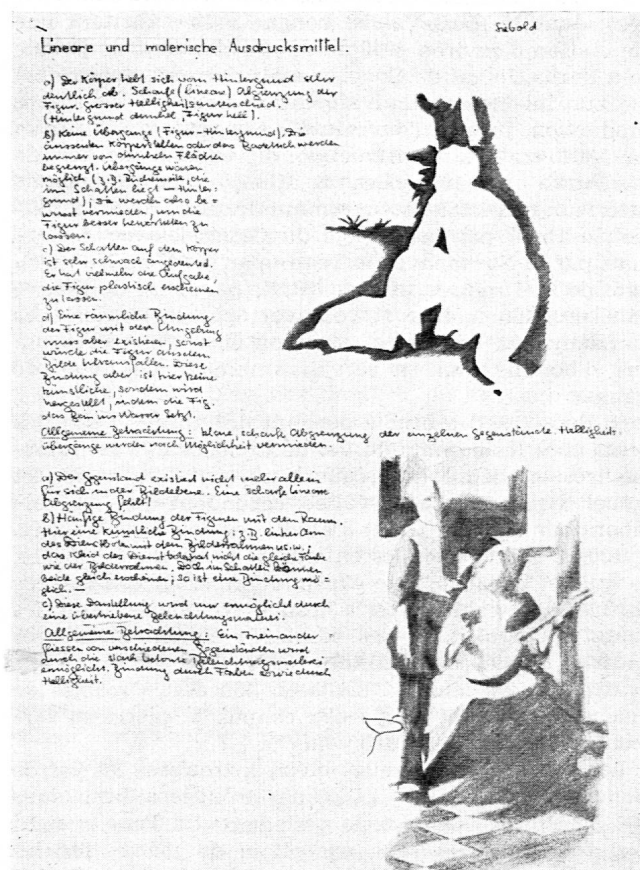 Sebold
Lineare und malerische Ausdrucksmittel.
a) Der Körper hebt sich vom Hintergrund sehr
deutlich ab. Scharfe (lineare) Abgrenzung der
Figur. Grosser Helligkeitsunterschied.
(Hintergrund dunkel, Figur hell).
b) Keine Übergänge (Figur-Hintergrund), Die
äussersten Körperstellen oder das Badetuch werden
immer von dunkeln Flächen
begrenzt. Übergänge wären
möglich (z.B. Rückenseite, die
im Schatten liegt — Hinter=
grund); sie werden also be=
wusst vermieden, um die
Figur besser hervortreten zu
lassen.
c) Der Schatten auf dem Körper
ist sehr schwach angedeutet.
Er hat vielmehr die Aufgabe,
die Figur plastisch erscheinen
zu lassen.
d) Eine räumliche Bindung
der Figur mit der Umgebung
muss aber existieren, sonst
würde die Figur aus dem
Bilde herausfallen. Diese
Bindung aber ist hier keine
künstliche, sondern wird
hergestellt, indem die Fig.
das Bein ins Wasser setzt.
Allgemeine Betrachtung: klare, scharfe Abgrenzung der einzelnen Gegenstände. Helligkeits=
übergänge werden nach Möglichkeit vermieden.
a) Der Gegenstand existiert nicht mehr allein
für sich in der Bildebene. Eine scharfe lineare
Abgrenzung fehlt!
b) Häufige Bindung der Figuren mit dem Raum.
Hier eine künstliche Bindung: z.B. linker Arm
des Dieners links mit dem Bilderrahmen usw.;
das Kleid des Dieners hat wohl nicht die gleiche Farbe
wie der Bilderrahmen. Doch im Schatten können
beide gleich erscheinen; so ist eine Bindung mö=
glich. —
c) Diese Darstellung wird nur ermöglicht durch
eine übertriebene Beleuchtungsmalerei.
Allgemeine Betrachtung: Ein Ineinander
fliessen von verschiedenen Gegenständen wird
durch die stark betonte Beleuchtungsmalerei
ermöglicht. Bindung durch Farben sowie durch
Helligkeit.